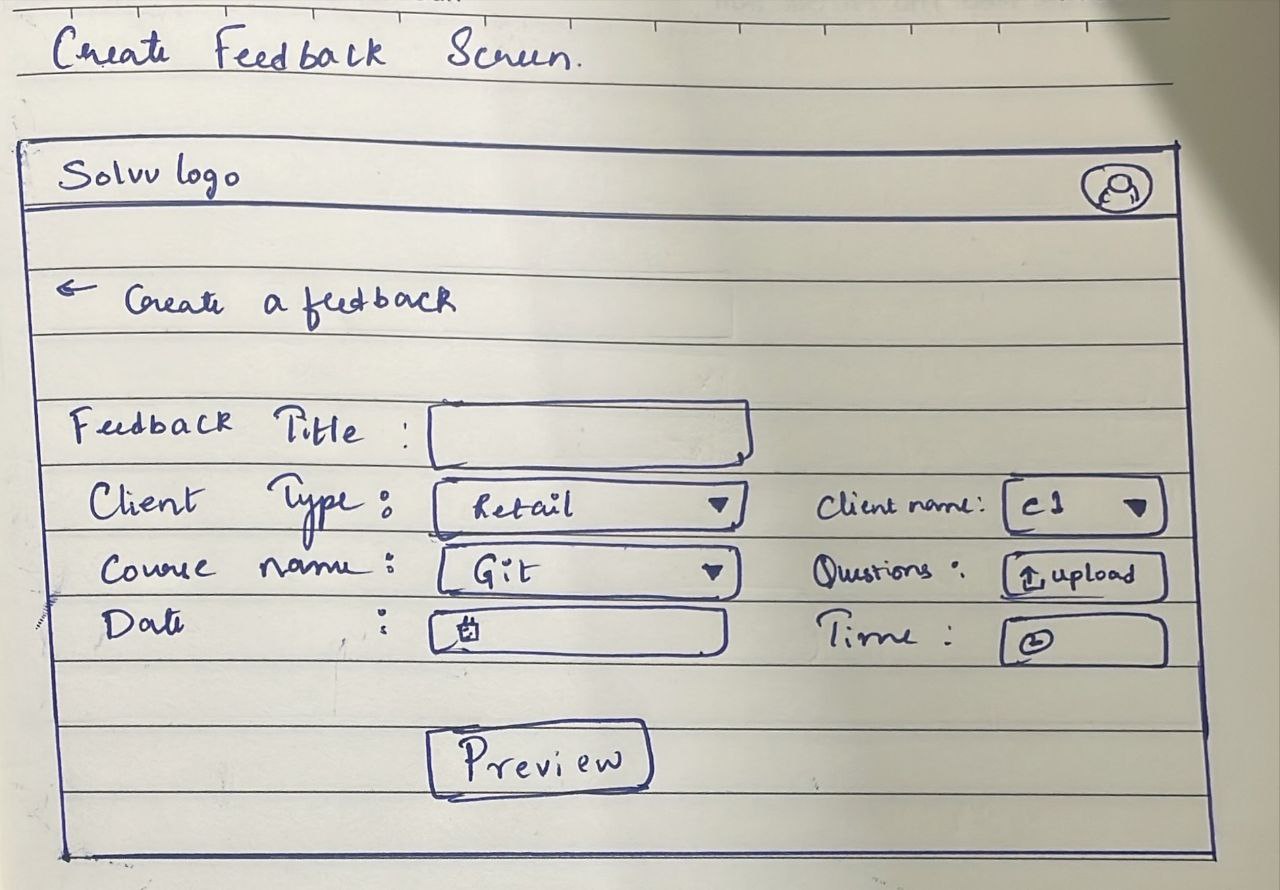 Create Feedback Screen.
Solvv logo
← Create a feedback
Feedback Title :
Client Type : Retail ▼ Client name: c1 ▼
Course name : Git ▼ Questions : upload
Date : Time :
Preview